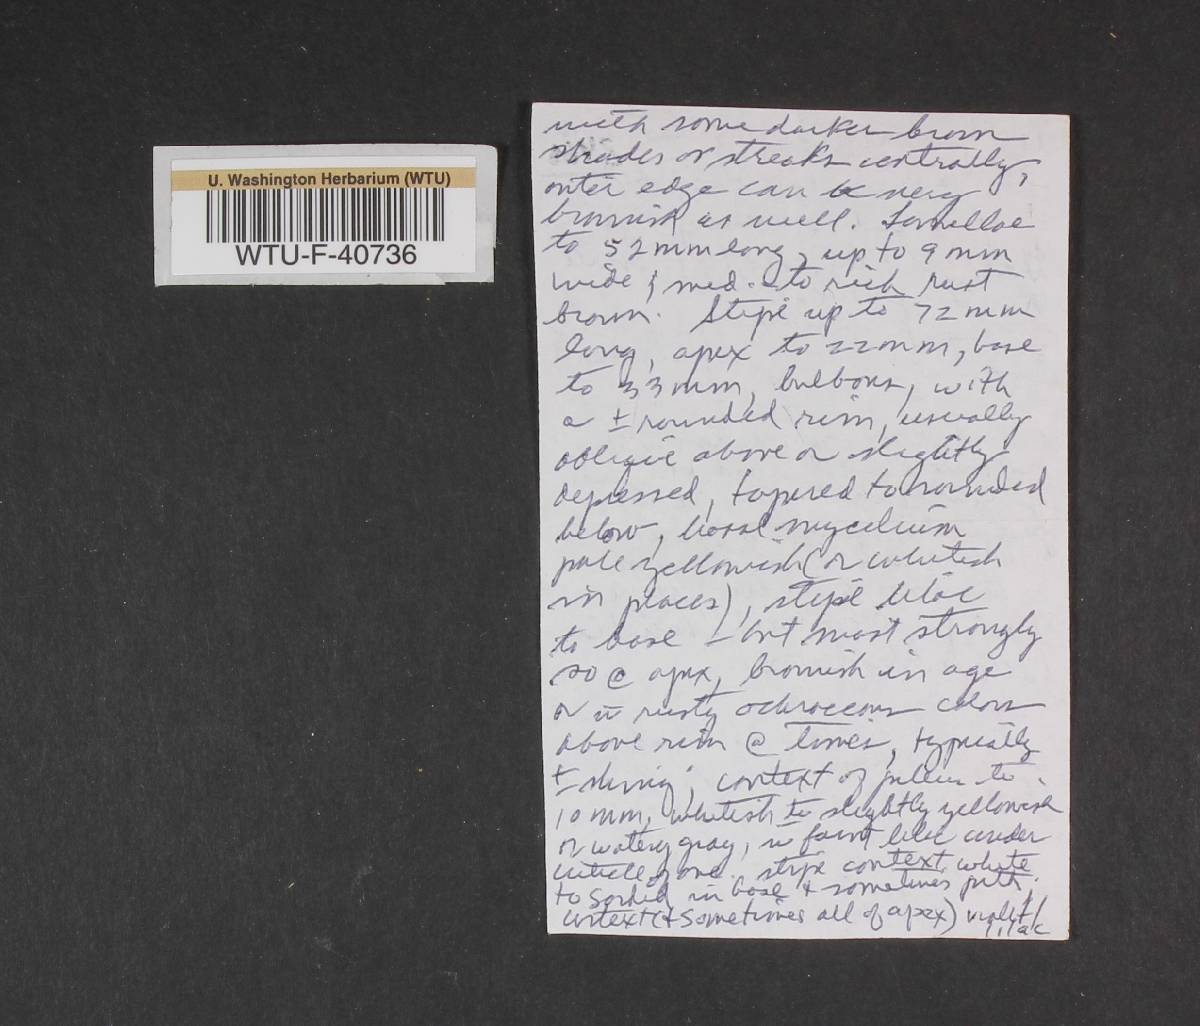 U. Washington Herbarium (WTU)
WTU-F-40736
with some darker brown
shades or streaks centrally,
outer edge can be very
brownish as well. Lamellae
to 52 mm long, up to 9 mm
wide & med. to rich rust
brown. Stipe up to 72 mm
long, apex to 22 mm, base
to 33 mm, bulbous, with
a ± rounded rim, usually
oblique above or slightly
depressed, tapered to rounded
below, basal mycelium
pale yellowish (or whitish
in places), stipe lilac
to base - but most strongly
so @ apex, brownish in age
or w rusty ochraceous colors
above rim @ times, typically
± shiny; context of pileus to
10 mm, whitish to slightly yellowish
or watery gray, w faint lilac under
cuticle zone. stipe context white
to sordid in base & sometimes pith,
cortex (& sometimes all of apex) violet/
lilac